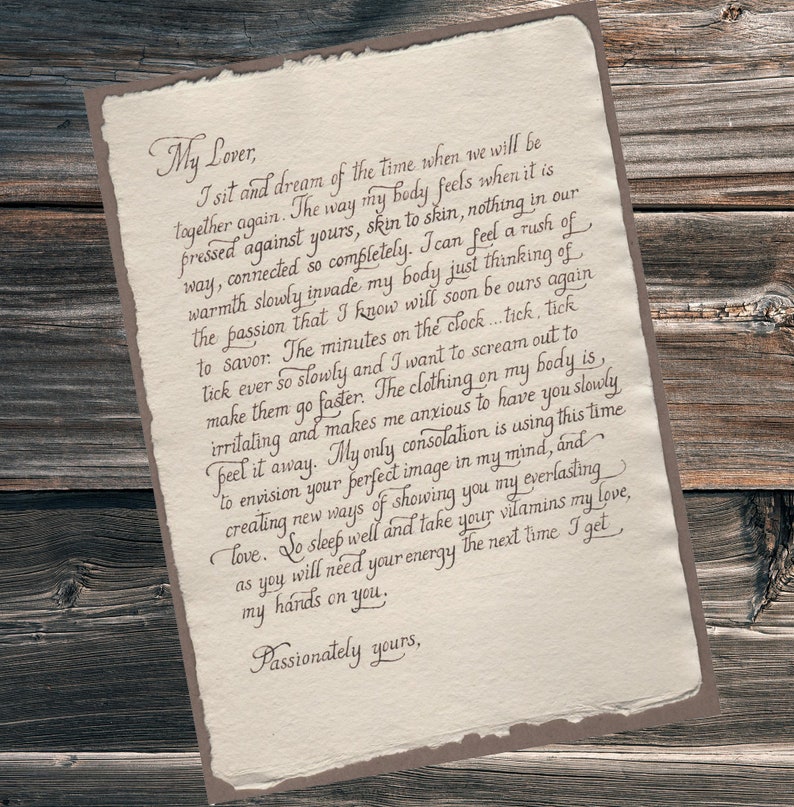 My Lover,
I sit and dream of the time when we will be
together again. The way my body feels when it is
pressed against yours, skin to skin, nothing in our
way, connected so completely. I can feel a rush of
warmth slowly invade my body just thinking of
the passion that I know will soon be ours again
to savor. The minutes on the clock...tick, tick
tick ever so slowly and I want to scream out to
make them go faster. The clothing on my body is,
irritating and makes me anxious to have you slowly
peel it away. My only consolation is using this time
to envision your perfect image in my mind, and
creating new ways of showing you my everlasting
love. So sleep well and take your vitamins my love,
as you will need your energy the next time I get
my hands on you.
Passionately yours,